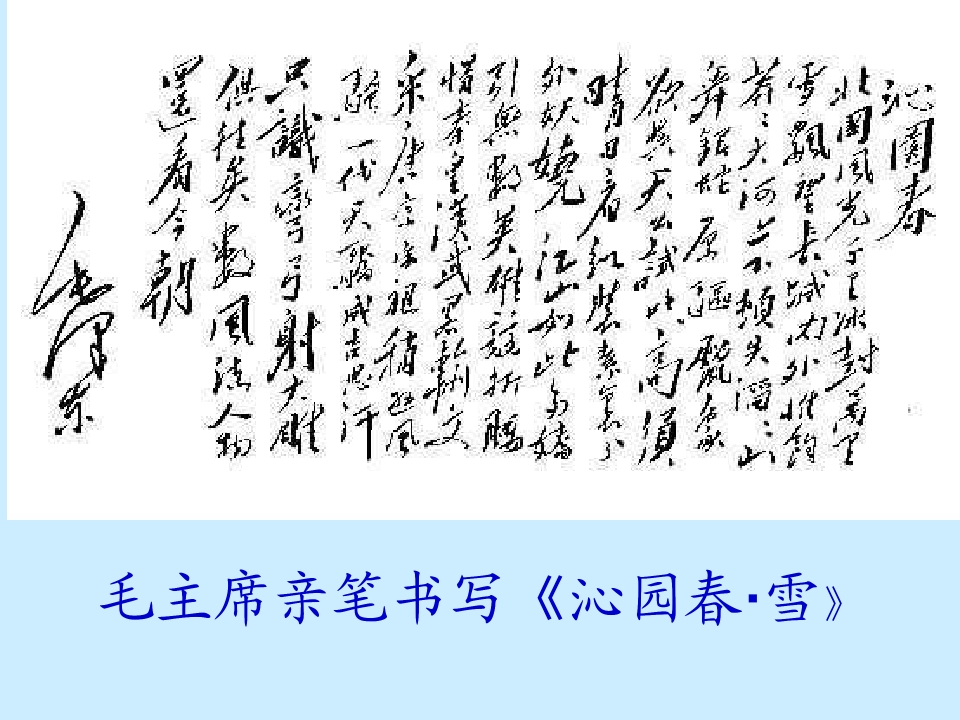 沁園春
北國風光千里冰封萬里
雪飄望長城內外惟餘
莽〻大河上下頓失滔〻山
舞銀蛇原驅臘象
欲與天公試比高須
晴日看紅裝素裹分
外妖嬈江山如此多嬌
引無數英雄競折腰
惜秦皇漢武略輸文
采唐宗宋祖稍遜風
騷一代天驕成吉思汗
只識彎弓射大雕
俱往矣數風流人物
還看今朝
毛澤東
毛主席亲笔书写《沁园春·雪》